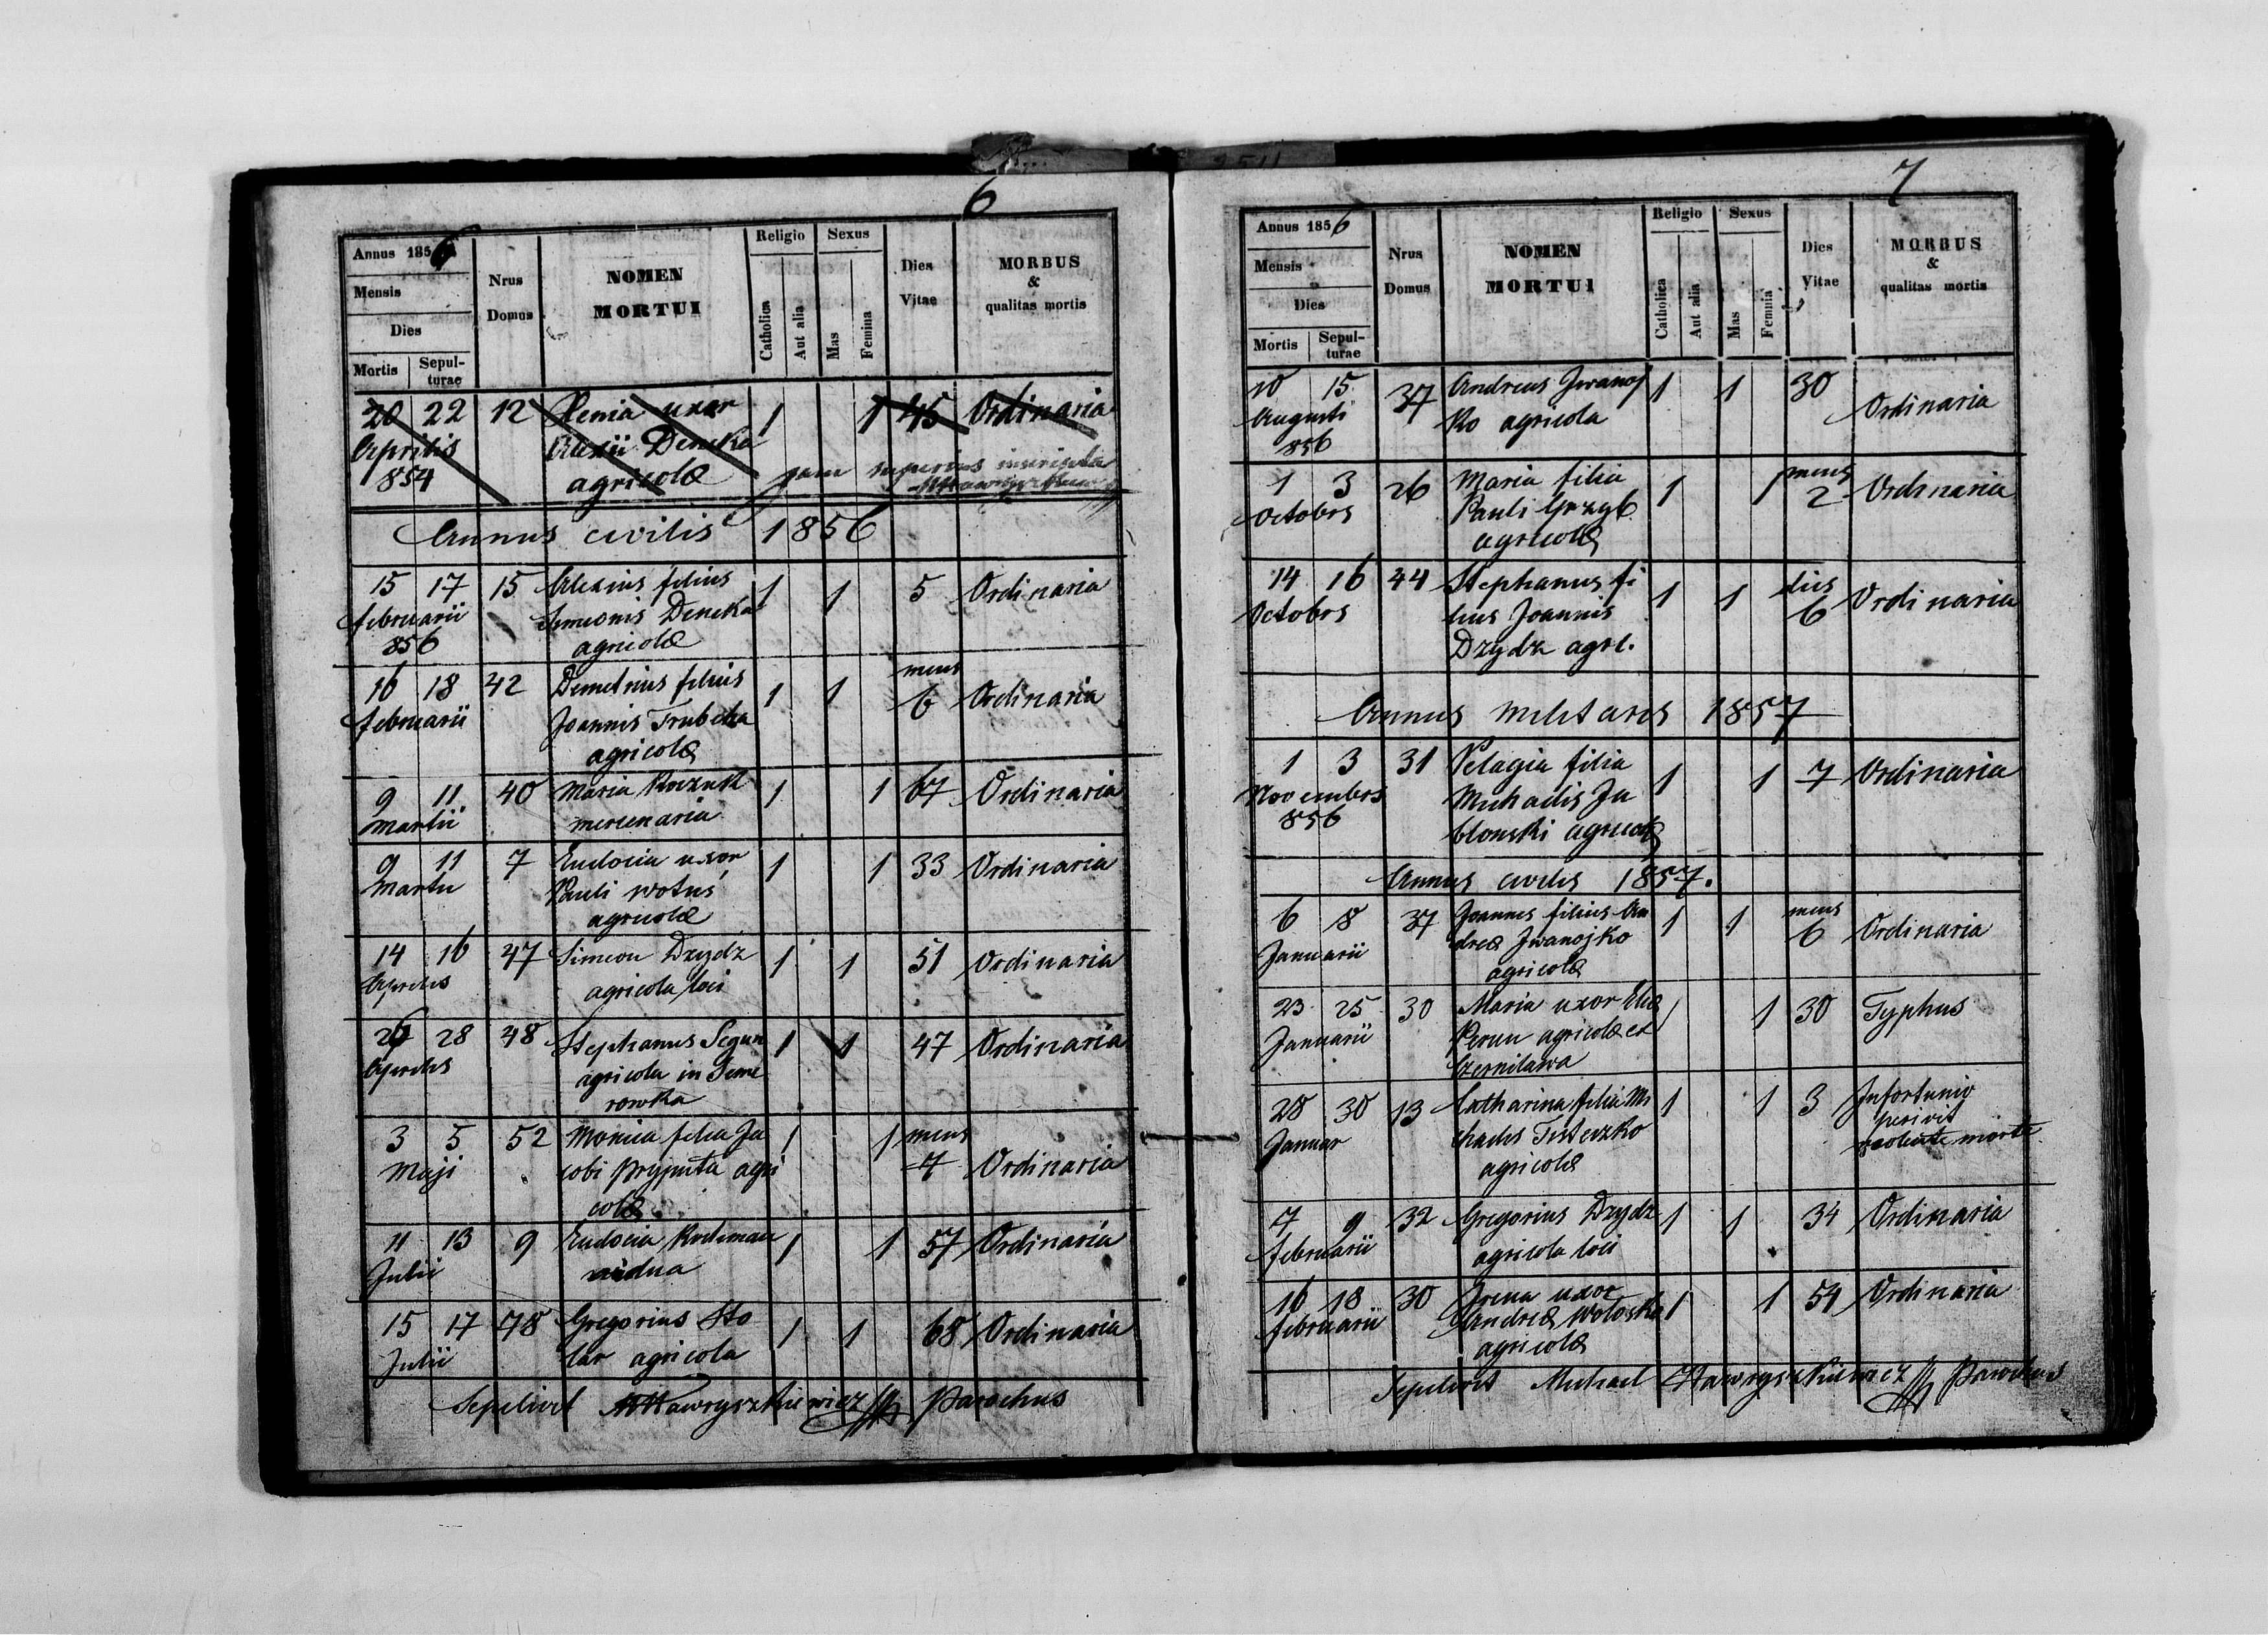 6
Annus 1856
Mensis
Dies
Mortis Sepul-
turae
Nrus
Domus
NOMEN
MORTUI
Religio
Catholica
Aut alia
Sexus
Mas
Femina
Dies
Vitae
MORBUS
&
qualitas mortis
20 22 12 Xenia uxor 1 1 45 Ordinaria
Aprilis Alexii Deneka
854 agricolæ jam superius inscripta
Annus civilis 1856
15 17 15 Alexius filius 1 1 5 Ordinaria
februarii Simeonis Deneka
856 agricolæ
16 18 42 Demetrius filius 1 1 mens 6 Ordinaria
februarii Joannis Trubcka
agricolæ
9 11 40 Maria Koczuk 1 1 67 Ordinaria
Martii mercenaria
9 11 7 Eudocia uxor 1 1 33 Ordinaria
Martii Pauli Wotuś
agricolæ
14 16 47 Simeon Dzydz 1 1 51 Ordinaria
Aprilis agricola loci
26 28 48 Stephanus Segun 1 1 47 Ordinaria
Aprilis agricola in Seme
rowka
3 5 52 Monica filia Ja 1 1 mens 7 Ordinaria
Maji cobi Pryputa agri
colæ
11 13 9 Eudocia 1 1 57 Ordinaria
Julii vidua
15 17 78 Gregorius Sto 1 1 68 Ordinaria
Julii lar agricola
Sepelivit MHawryszkiewicz Parochus
7
Annus 1856
Mensis
Dies
Mortis Sepul-
turae
Nrus
Domus
NOMEN
MORTUI
Religio
Catholica
Aut alia
Sexus
Mas
Femina
Dies
Vitae
MORBUS
&
qualitas mortis
10 15 37 Andreas Jwanoj 1 1 30 Ordinaria
Augusti ko agricola
856
1 3 26 Maria filia 1 1 mens 2 Ordinaria
Octobris Pauli Grzyb
agricolæ
14 16 44 Stephanus fi 1 1 dies 6 Ordinaria
Octobris lius Joannis
Dzydz agric.
Annus militaris 1857
1 3 31 Pelagia filia 1 1 7 Ordinaria
Novembris Michaelis Ja
856 blonski agricolæ
Annus civilis 1857.
6 8 37 Joannes filius An 1 1 mens 6 Ordinaria
Januarii dreæ Jwanojko
agricolæ
23 25 30 Maria uxor Eliæ 1 1 30 Typhus
Januarii Perun agricolæ ex
Czernilawa
28 30 13 Catharina filia Mi 1 1 3 Infortunio
Januar chaelis Tisteczko perivit
agricolæ violenta morte
7 9 32 Gregorius Dzydz 1 1 34 Ordinaria
februarii agricola loci
16 18 30 Irena uxor 1 1 54 Ordinaria
februarii Andreæ Wotoska
agricolæ
Sepelivit Michael Hawryszkiewicz Parochus